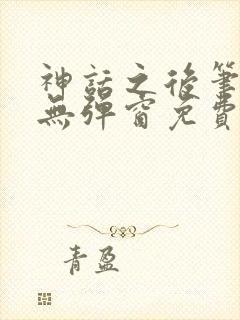 神話之後筆
無彈窗免費
青盈